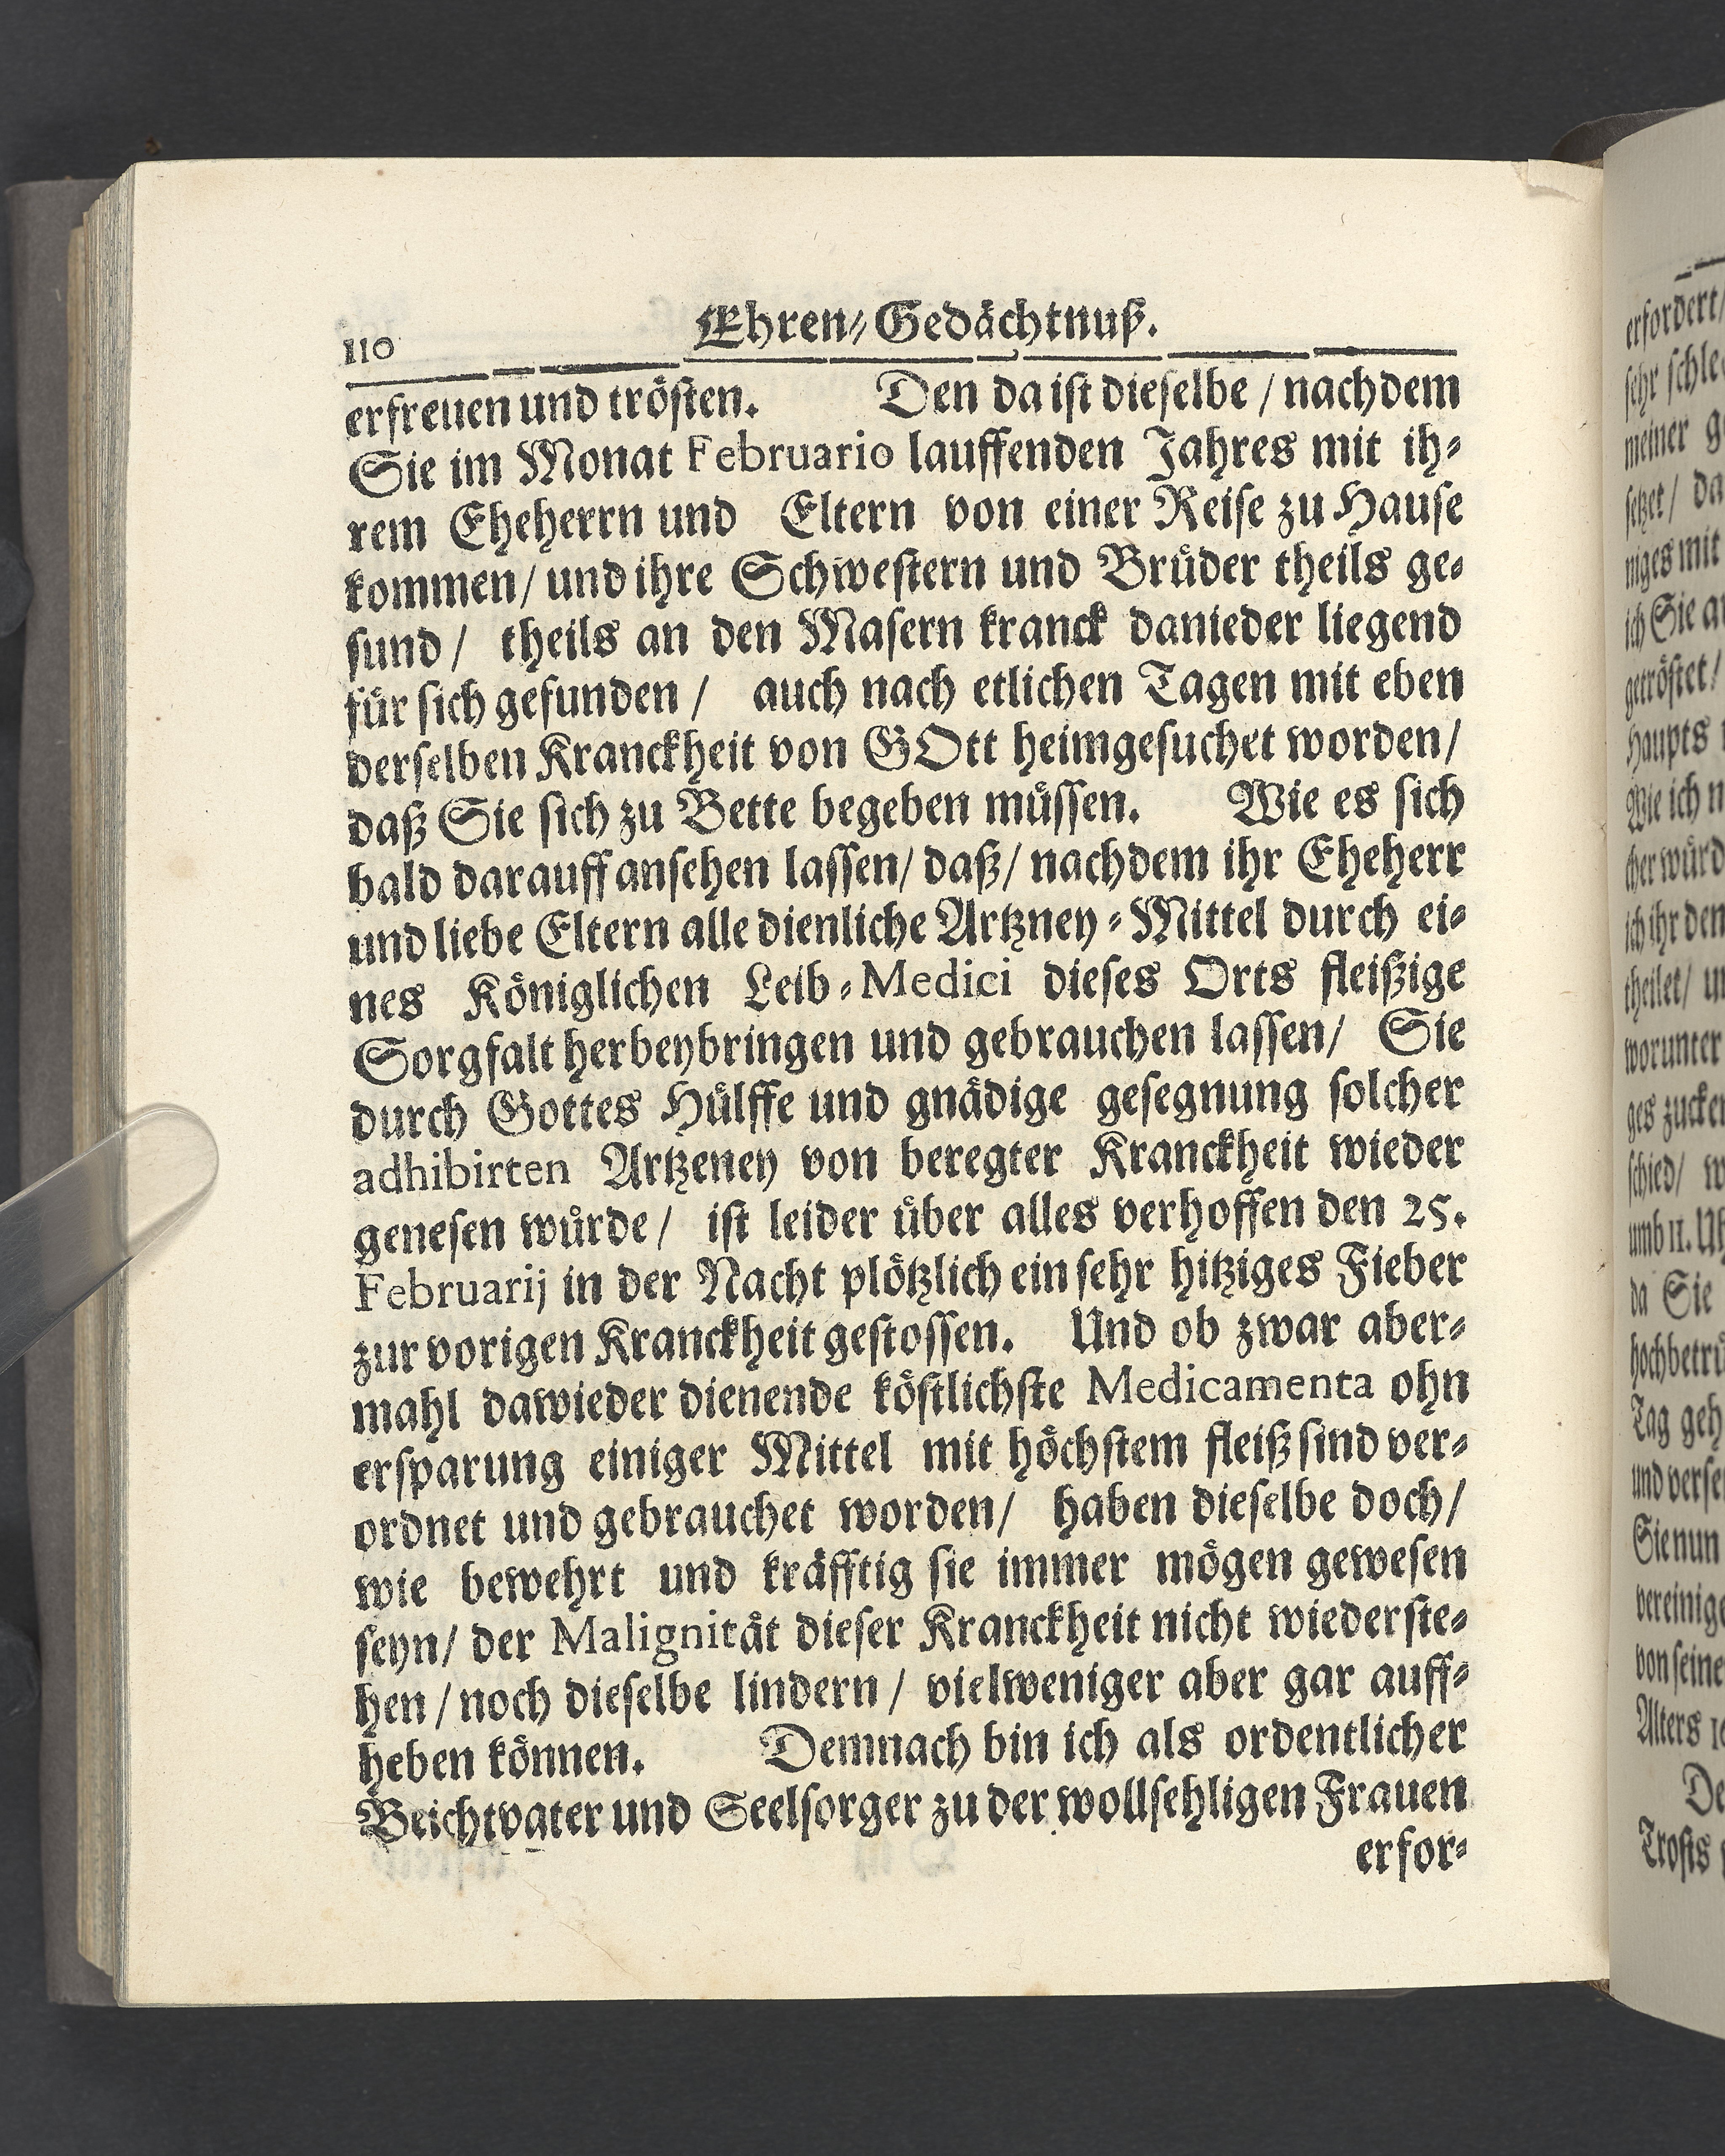 110
Ehren-Gedächtnuß.
erfreuen und trösten. Den da ist dieselbe / nachdem
Sie im Monat Februario lauffenden Jahres mit ih-
rem Eheherrn und Eltern von einer Reise zu Hause
kommen / und ihre Schwestern und Brüder theils ge-
sund / theils an den Masern kranck danieder liegend
für sich gefunden / auch nach etlichen Tagen mit eben
derselben Kranckheit von GOtt heimgesuchet worden /
daß Sie sich zu Bette begeben müssen. Wie es sich
bald darauff ansehen lassen / daß / nachdem ihr Eheherr
und liebe Eltern alle dienliche Artzney-Mittel durch ei-
nes Königlichen Leib-Medici dieses Orts fleißige
Sorgfalt herbeybringen und gebrauchen lassen / Sie
durch Gottes Hülffe und gnädige gesegnung solcher
adhibirten Artzeney von beregter Kranckheit wieder
genesen würde / ist leider über alles verhoffen den 25.
Februarij in der Nacht plötzlich ein sehr hitziges Fieber
zur vorigen Kranckheit gestossen. Und ob zwar aber-
mahl dawieder dienende köstlichste Medicamenta ohn
ersparung einiger Mittel mit höchstem fleiß sind ver-
ordnet und gebrauchet worden / haben dieselbe doch /
wie bewehrt und kräfftig sie immer mögen gewesen
seyn / der Malignität dieser Kranckheit nicht wiederste-
hen / noch dieselbe lindern / vielweniger aber gar auff-
heben können. Demnach bin ich als ordentlicher
Beichtvater und Seelsorger zu der wollsehligen Frauen
erfor-
erfordert /
sehr
meiner
setzet / da
niges mit
ich Sie
getröstet /
Haupts
Wie ich
cher
ich ihr den
theilet /
worunter
ges
schied /
umb 11.
da Sie
Tag
und
Sie nun
von seine
Alters
Trosts